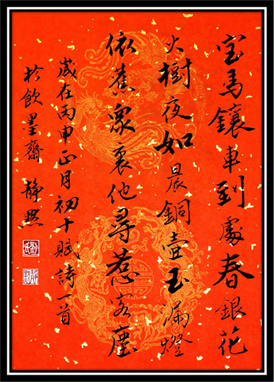 宝馬鑲車到處春銀花
火樹夜如晨銅壺玉漏燈
依舊眾裏他尋惹客塵
歲在丙申正月初十賦詩一首
於飲墨齋 靜